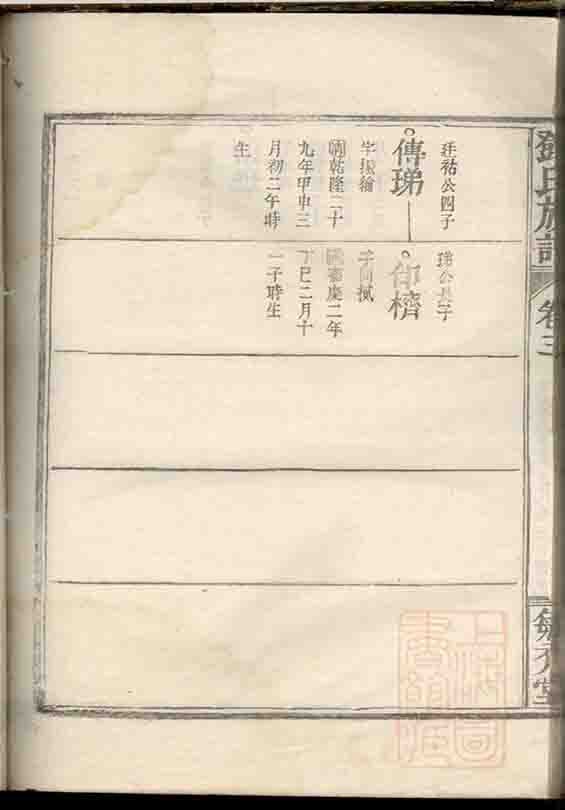 氏族譜
卷三
堂
祜公四子
傳珶
字振
乾隆二十
九年甲申三
月初二午時
生
珶公長子
嘉慶二年
丁巳二月十
一子時生
上海圖
書館藏